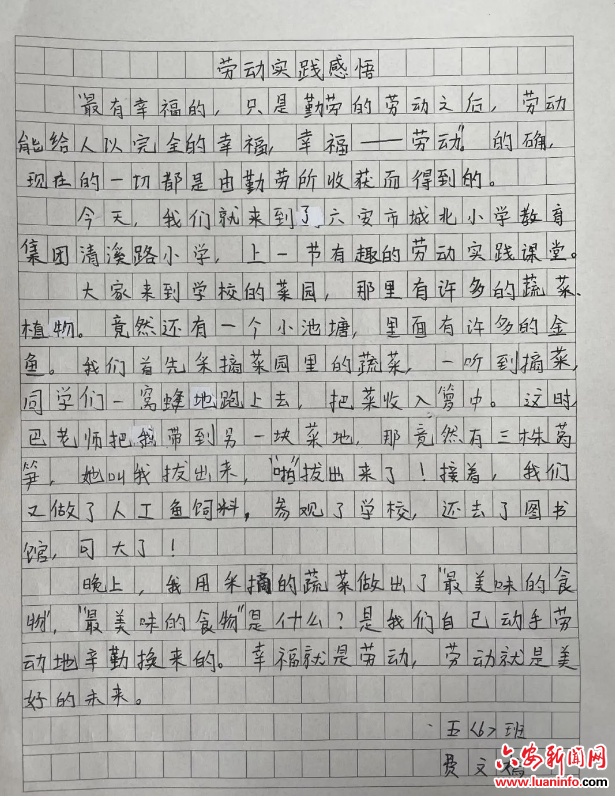 劳动实践感悟
"最有幸福的，只是勤劳的劳动之后，劳动
能给人以完全的幸福，幸福——劳动"。的确，
现在的一切都是由勤劳所收获而得到的。
今天，我们就来到了六安市城北小学教育
集团清溪路小学，上一节有趣的劳动实践课堂。
大家来到学校的菜园，那里有许多的蔬菜、
植物。竟然还有一个小池塘，里面有许多的金
鱼。我们首先采摘菜园里的蔬菜，一听到摘菜，
同学们一窝蜂地跑上去，把菜收入箩中。这时，
巴老师把我带到另一块菜地，那竟然有三株莴
笋，她叫我拔出来，"啪"拔出来了！接着，我们
又做了人工鱼饲料，参观了学校，还去了图书
馆，可大了！
晚上，我用采摘的蔬菜做出了"最美味的食
物"，"最美味的食物"是什么？是我们自己动手劳
动地辛勤换来的。幸福就是劳动，劳动就是美
好的未来。
五〈6〉班
费文
六安新闻网
www.luaninfo.com